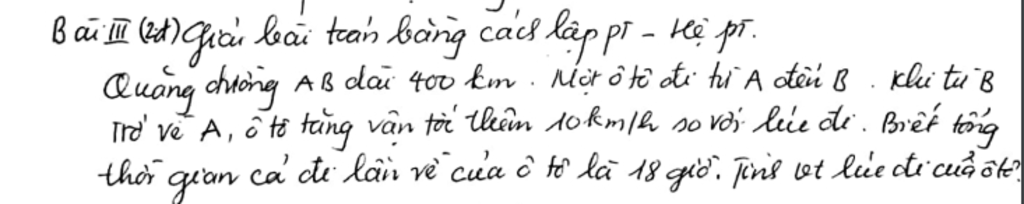 Bài III (2đ) Giải bài toán bằng cách lập pT - Hệ pT.
Quãng đường AB dài 400 km. Một ô tô đi từ A đến B. Khi từ B
Trở về A, ô tô tăng vận tốc thêm 10km/h so với lúc đi. Biết tổng
thời gian cả đi lẫn về của ô tô là 18 giờ. Tính vt lúc đi của ôtô?